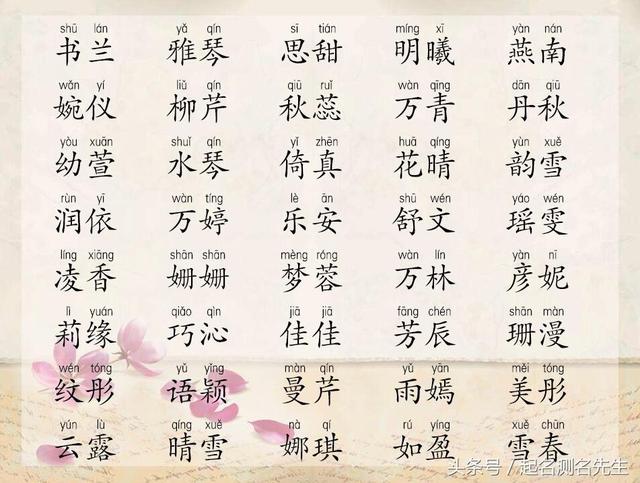 shū lán yǎ qín sī tián míng xī yàn nán
书兰 雅琴 思甜 明曦 燕南
wǎn yí liǔ qín qiū ruǐ wàn qīng dān qiū
婉仪 柳芹 秋蕊 万青 丹秋
yòu xuān shuǐ qín yǐ zhēn huā qíng yùn xuě
幼萱 水琴 倚真 花晴 韵雪
rùn yī wàn tíng lè ān shū wén yáo wén
润依 万婷 乐安 舒文 瑶雯
líng xiāng shān shān mèng róng wàn lín yàn nī
凌香 姗姗 梦蓉 万林 彦妮
lì yuán qiǎo qìn jiā jiā fāng chén shān màn
莉缘 巧沁 佳佳 芳辰 珊漫
wén tóng yǔ yǐng màn qín yǔ yān měi tóng
纹彤 语颖 曼芹 雨嫣 美彤
yún lù qíng xuě nà qí rú yíng xuě chūn
云露 晴雪 娜琪 如盈 雪春
头条号 / 起名测名先生